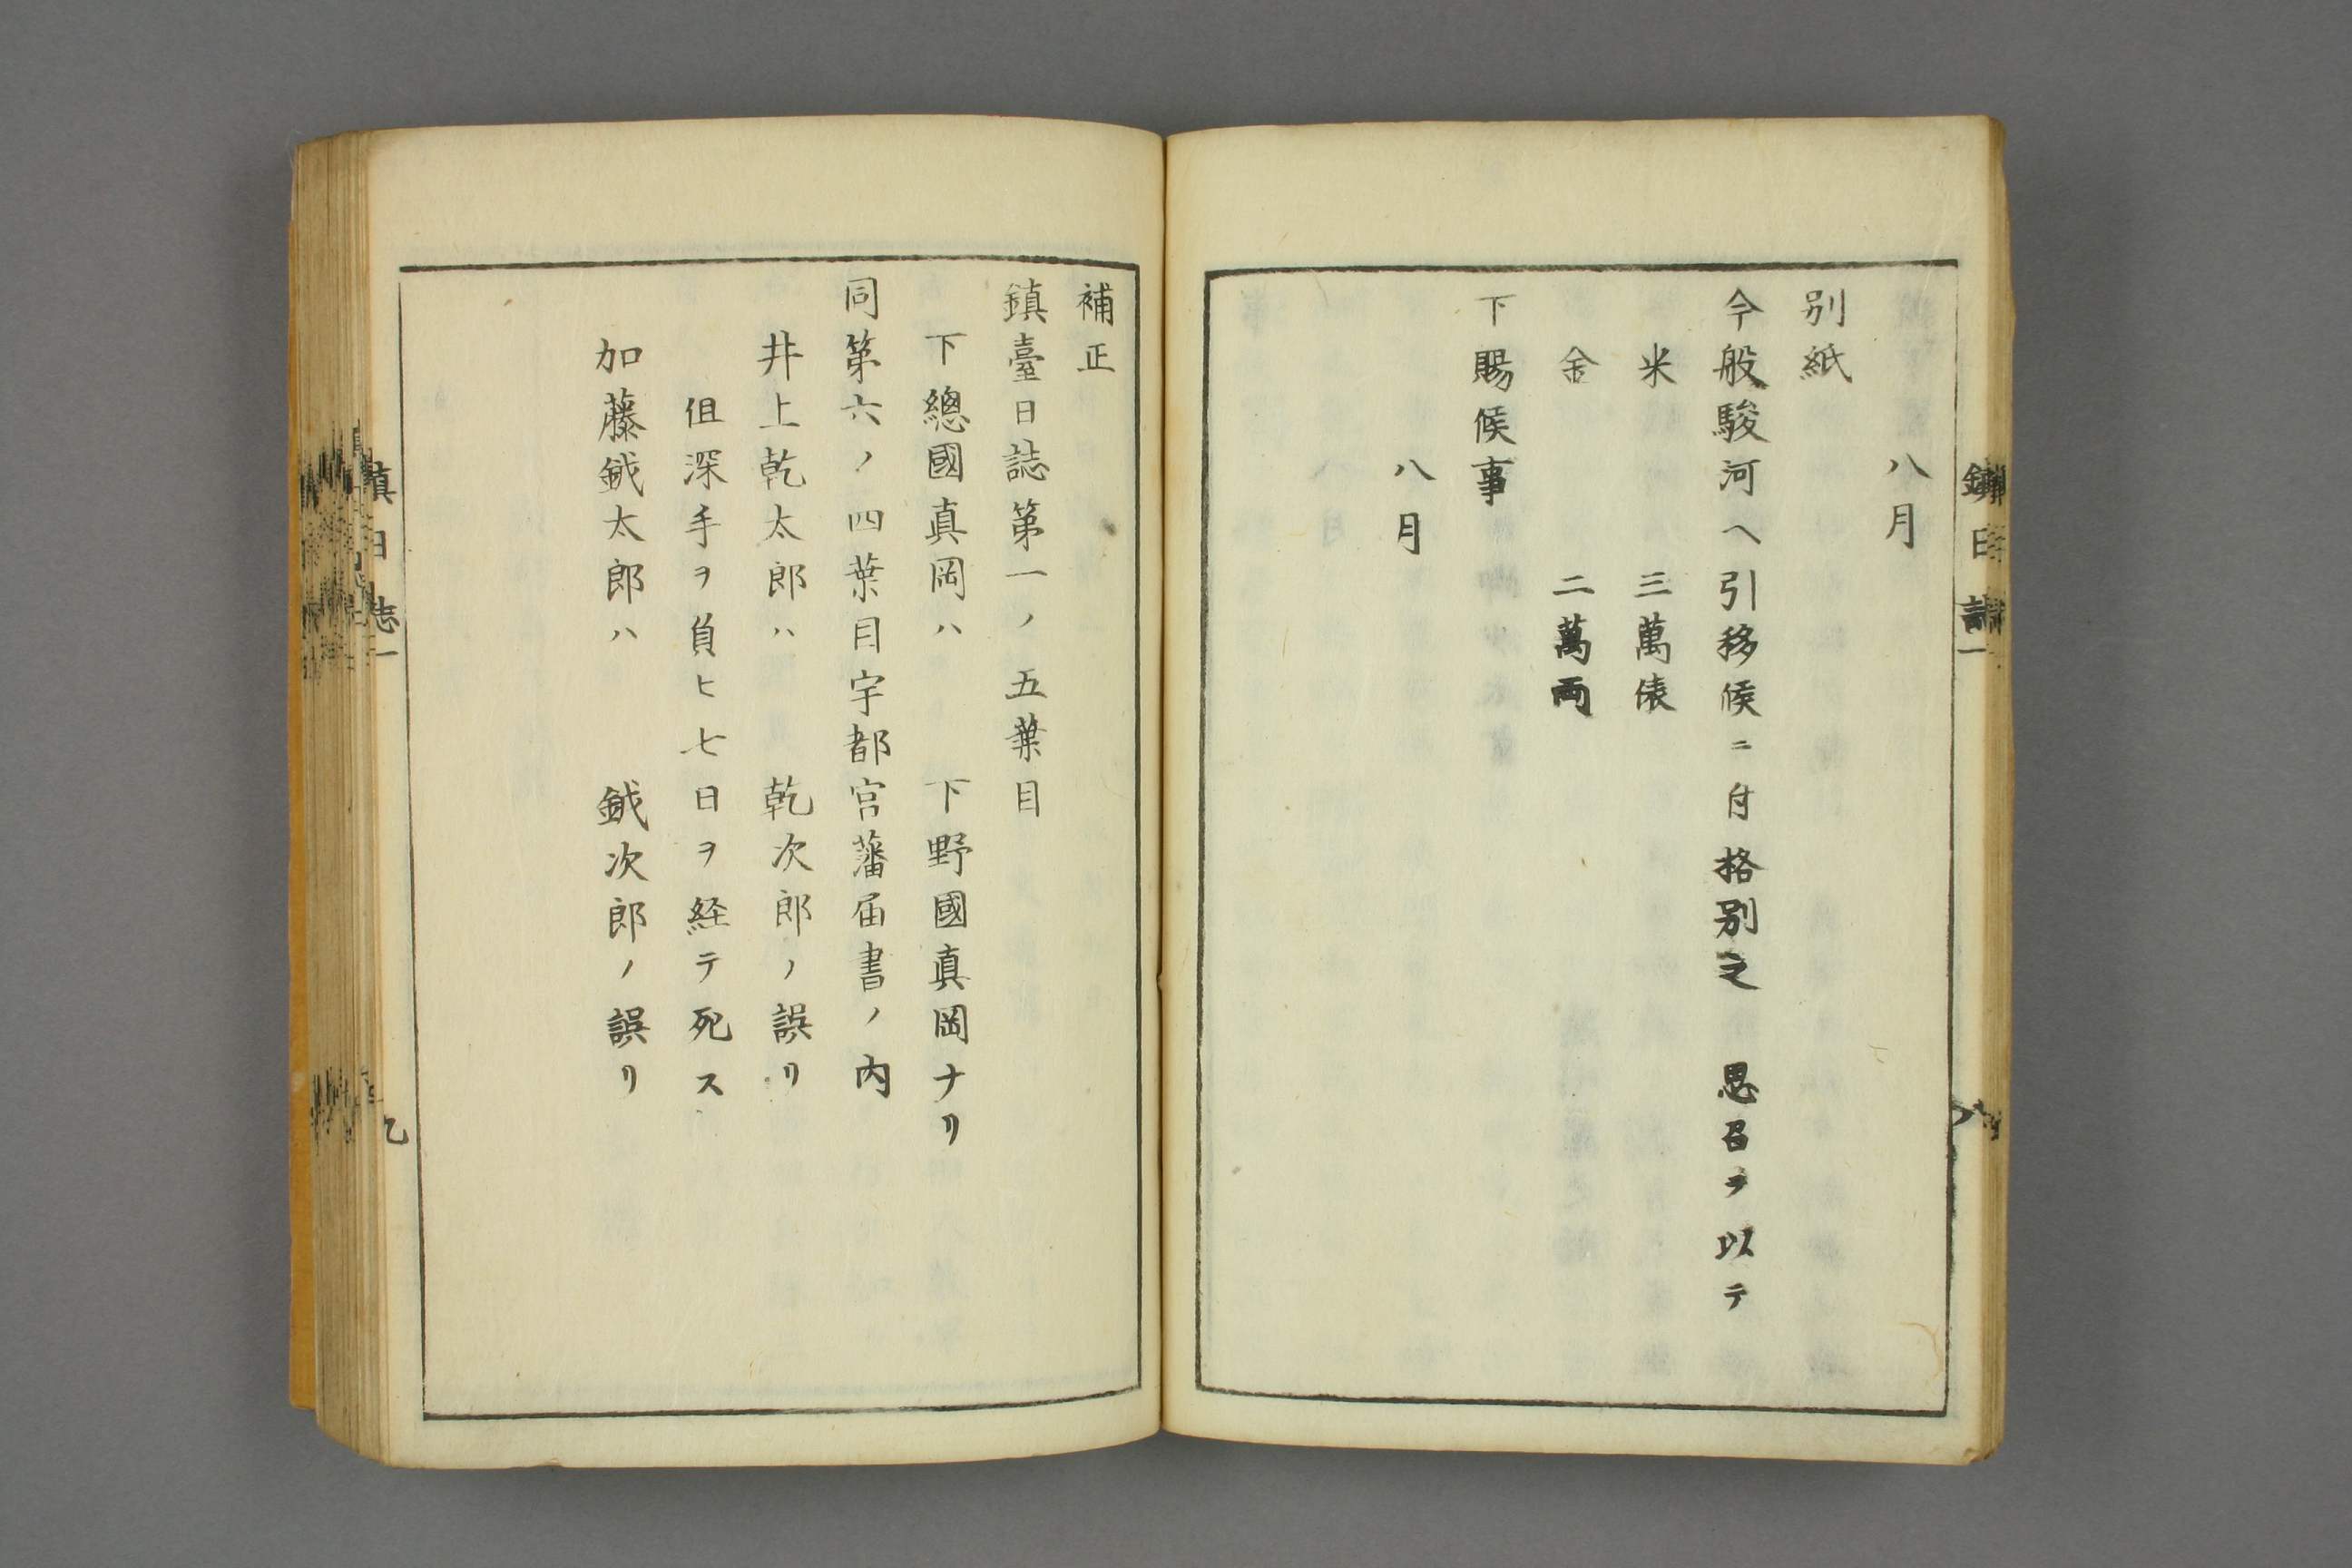 八月
別紙
今般駿河ヘ引移候ニ付格別之　思召ヲ以テ
米　　　三萬俵
金　　　二萬両
下賜候事
八月
補正
鎮臺日誌第一ノ五葉目
下總國真岡ハ　　下野國真岡ナリ
同第六ノ四葉目宇都宮藩届書ノ内
井上乾太郎ハ　　乾次郎ノ誤リ
但深手ヲ負ヒ七日ヲ経テ死ス
加藤鉞太郎ハ　　鉞次郎ノ誤リ